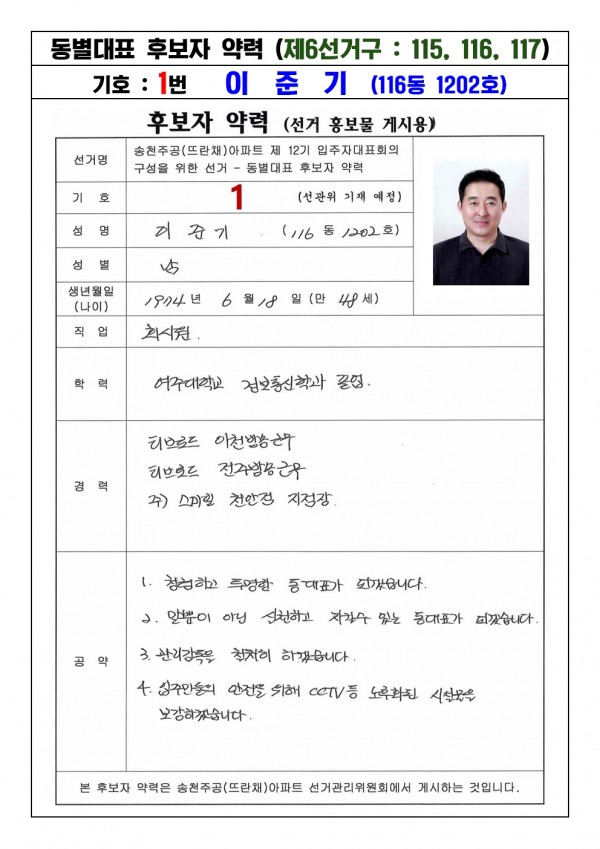 동별대표 후보자 약력 (제6선거구 : 115, 116, 117)
기호 : 1번 이 준 기 (116동 1202호)
후보자 약력 (선거 홍보물 게시용)
선거명 송천주공(뜨란채)아파트 제 12기 입주자대표회의
구성을 위한 선거 – 동별대표 후보자 약력
기 호 1 (선관위 기재 예정)
성 명 이 준 기 (116 동 1202 호)
성 별 남
생년월일
(나이)
1974 년 6 월 18 일 (만 48 세)
직 업 회사원.
학 력 여주대학교 정보통신학과 졸업.
경 력
티브로드 이천방송근무
티브로드 전주방송근무
주) 스피릴 천안점 지점장
공 약
1. 청렴하고 투명한 동대표가 되겠습니다.
2. 말뿐이 아닌 실천하고 자랑할수 있는 동대표가 되겠습니다.
3. 관리감독을 철저히 하겠습니다.
4. 입주민들의 안전을 위해 CCTV 등 노후화된 시설물을
보강하겠습니다.
본 후보자 약력은 송천주공(뜨란채)아파트 선거관리위원회에서 게시하는 것입니다.